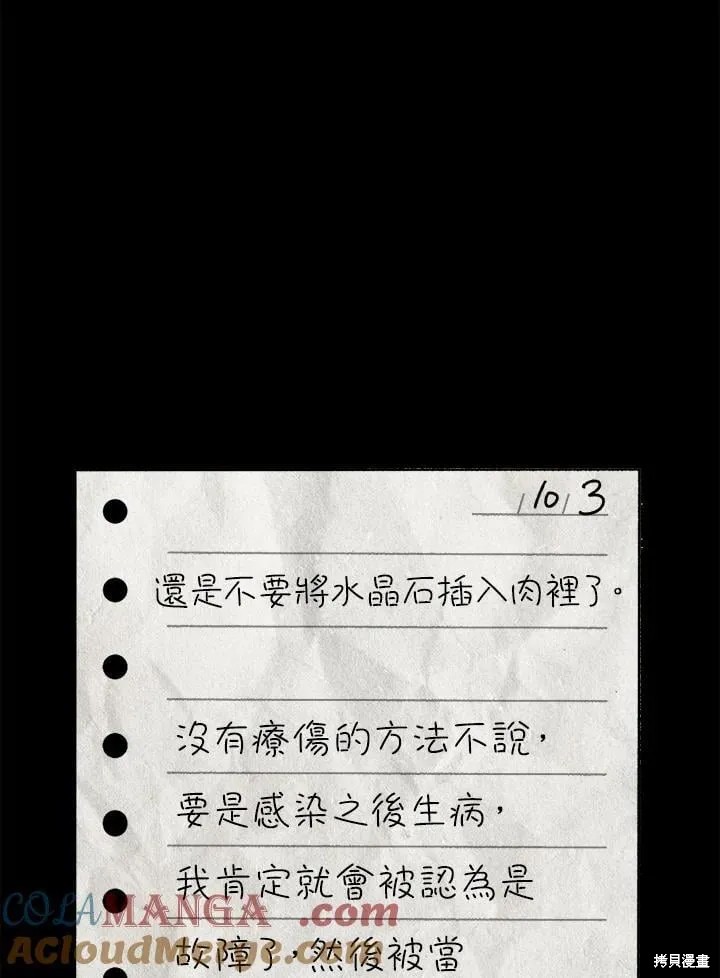 /10/3
還是不要將水晶石插入肉裡了。
沒有療傷的方法不說，
要是感染之後生病，
我肯定就會被認為是
COLAMANGA.com
故障了，然後被當
AcloudMerge.com
拷貝漫畫